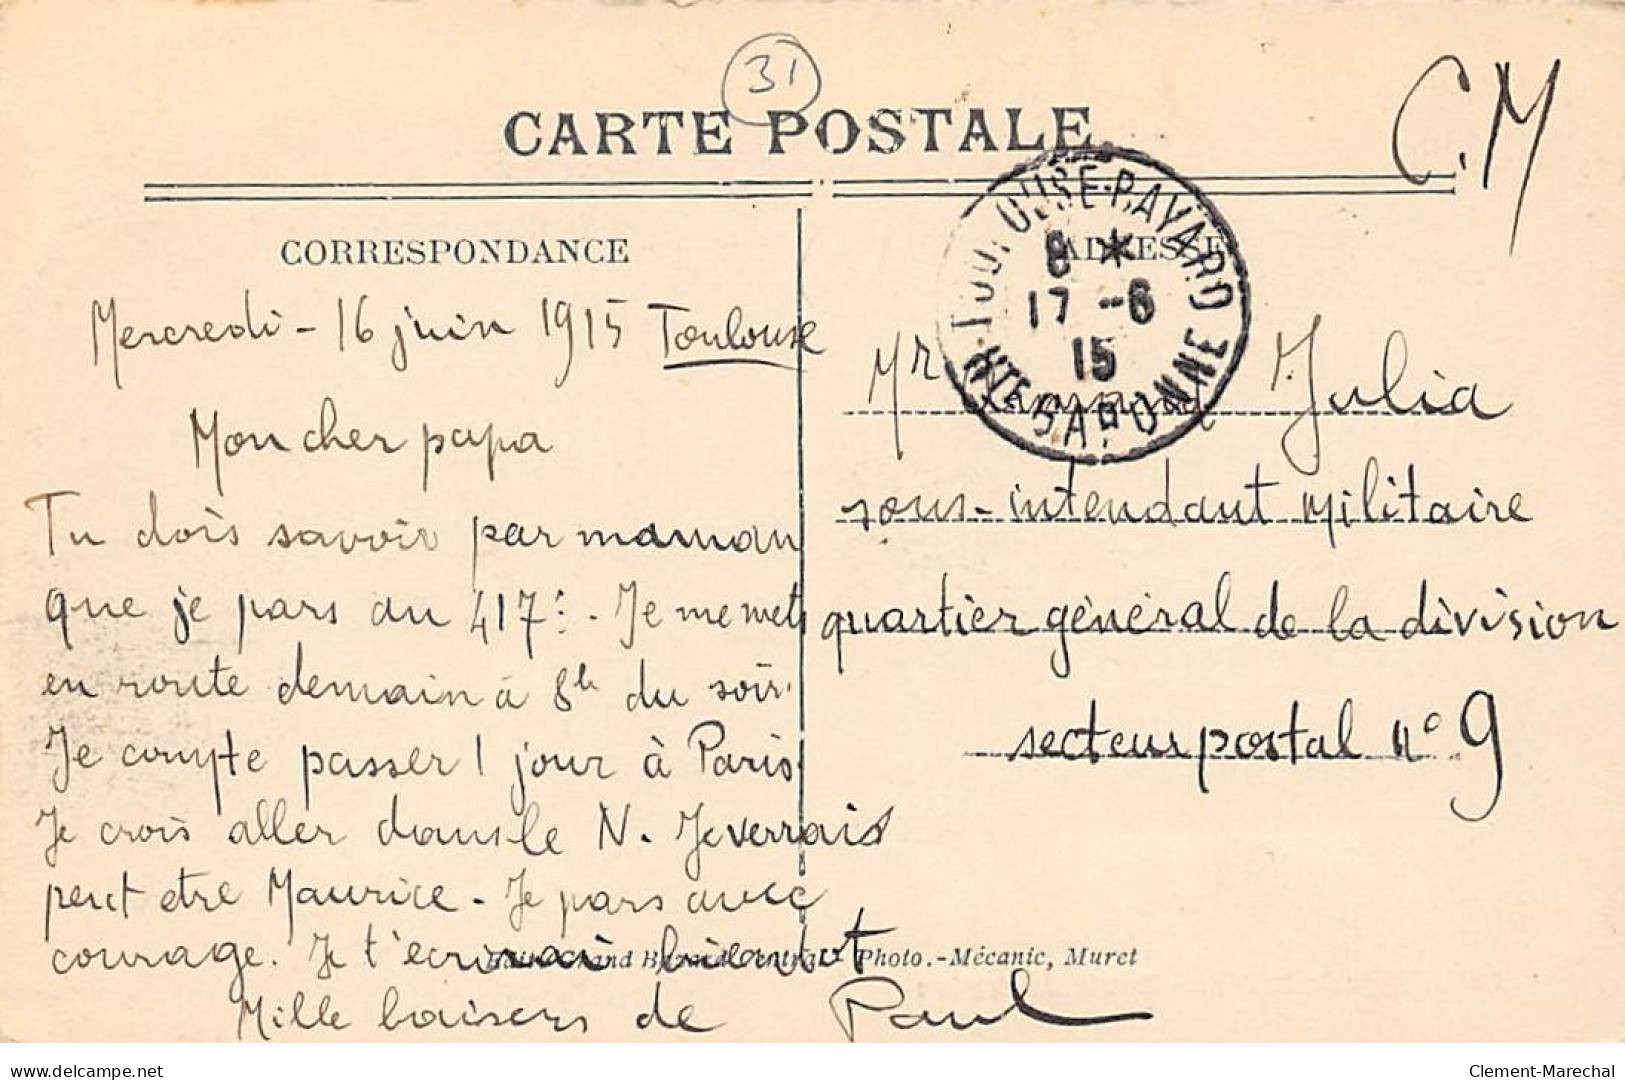 31
C.M
CARTE POSTALE
CORRESPONDANCE
ADRESSE
TOULOUSE-BAYARD
8 *
17 -6
15
HTE GARONNE
Mercredi - 16 juin 1915 Toulouse
Mon cher papa
Tu dois savoir par maman
que je pars au 417e. - Je me mets
en route demain à 8h du soir.
Je compte passer 1 jour à Paris.
Je crois aller dans le N. Je verrais
peut etre Maurice - Je pars avec
courage. Je t'écrirai bientot
Mille baisers de Paul
Mr Julia
sous-intendant militaire
quartier général de la division
secteur postal n° 9
Edit. Grand Bazar Central - Photo.-Mécanic, Muret
delcampe.net
Clement-Marechal